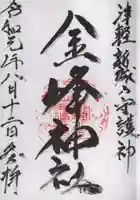 津軽越城之守護神
金峰神社
令和元年八月十二日参拝